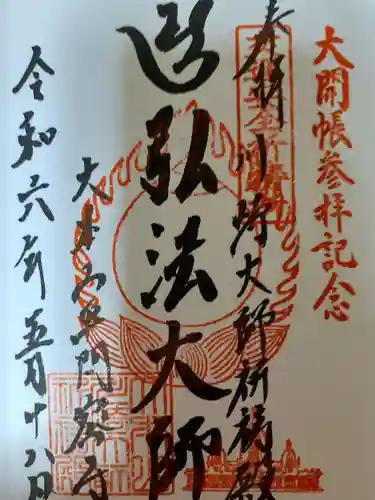 大開帳参拝記念
奉拝 川崎大師祈祷殿
弘法大師
大本山平間寺
令和六年五月十八日